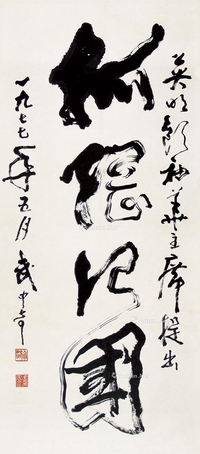 英明领袖华主席提出
抓纲治国
一九七七年五月 武中奇